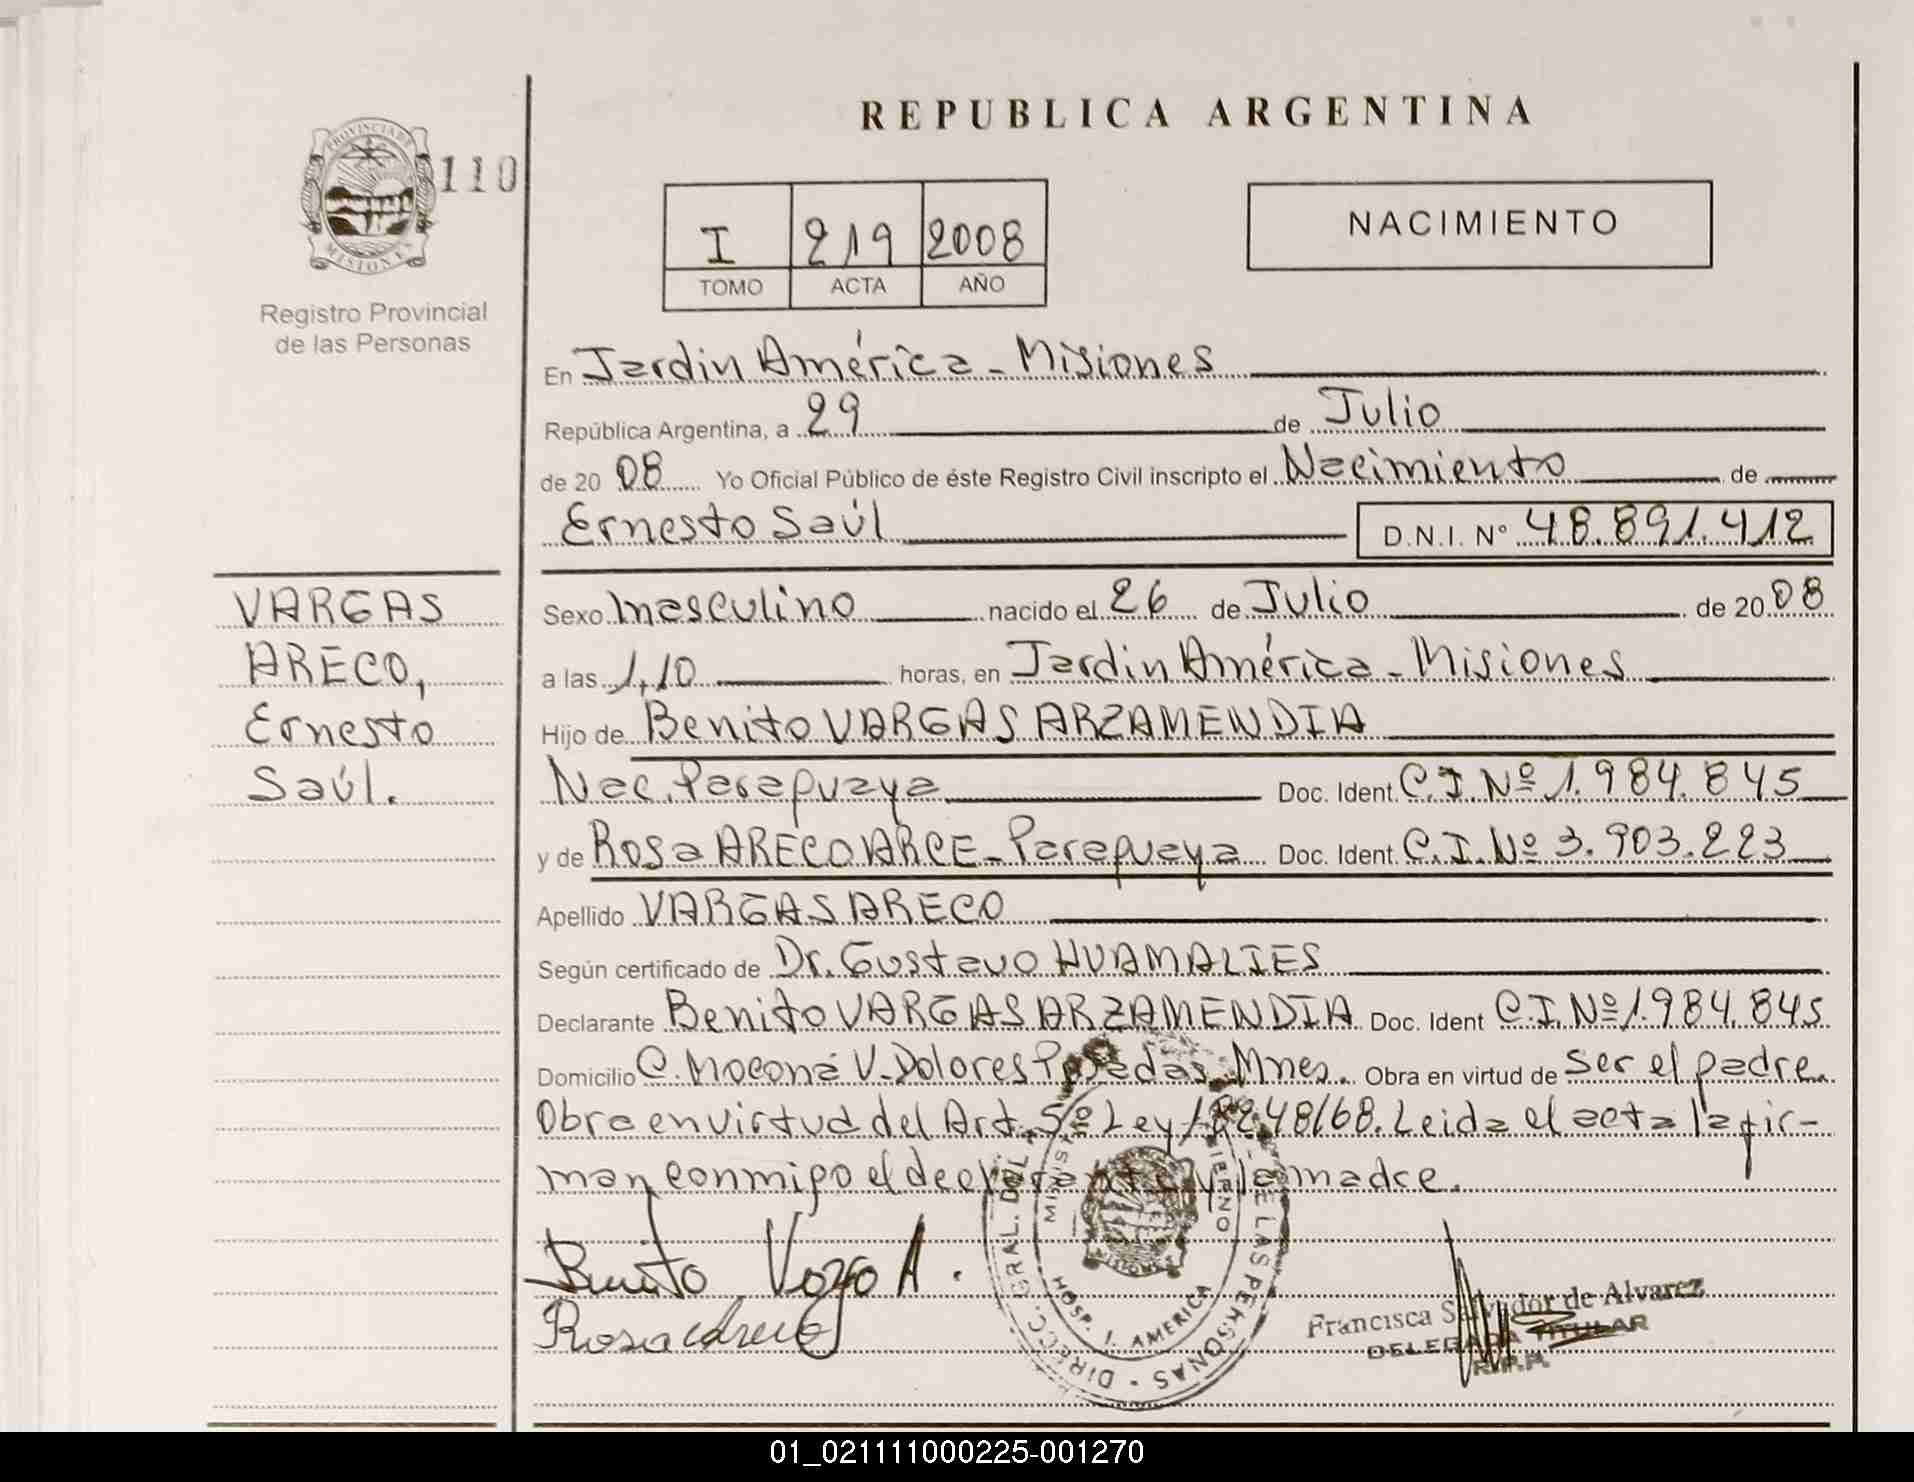 REPUBLICA ARGENTINA
PROVINCIA DE
MISIONES
110
Registro Provincial
de las Personas
I 219 2008
TOMO ACTA AÑO
NACIMIENTO
En Jardin América - Misiones
República Argentina, a 29 de Julio
de 2008 Yo Oficial Público de éste Registro Civil inscripto el Nacimiento de
Ernesto Saúl D.N.I. Nº 48.891.412
VARGAS
ARECO,
Ernesto
Saúl.
Sexo masculino nacido el 26 de Julio de 2008
a las 1,10 horas, en Jardin América - Misiones
Hijo de Benito VARGAS ARZAMENDIA
Nac. Paraguaya Doc. Ident. C.I. Nº 1.984.845
y de Rosa ARECO ARCE - Paraguaya Doc. Ident. C.I. Nº 3.903.223
Apellido VARGAS ARECO
Según certificado de Dr. Gustavo HUAMALIES
Declarante Benito VARGAS ARZAMENDIA Doc. Ident C.I. Nº 1.984.845
Domicilio C. Moconá V. Dolores Posadas Mnes. Obra en virtud de ser el padre.
Obra en virtud del Art. 5º Ley 18248/68. Leida el acta la fir-
man conmigo el declarante y la madre.
Benito A.
Rosa Areco
DIRECC. GRAL. DEL DE LAS PERSONAS
HOSP. J. AMERICA
MISIONES
Francisca Salvador de Alvarez
DELEGADA TITULAR
R.P.P.
01_021111000225-001270